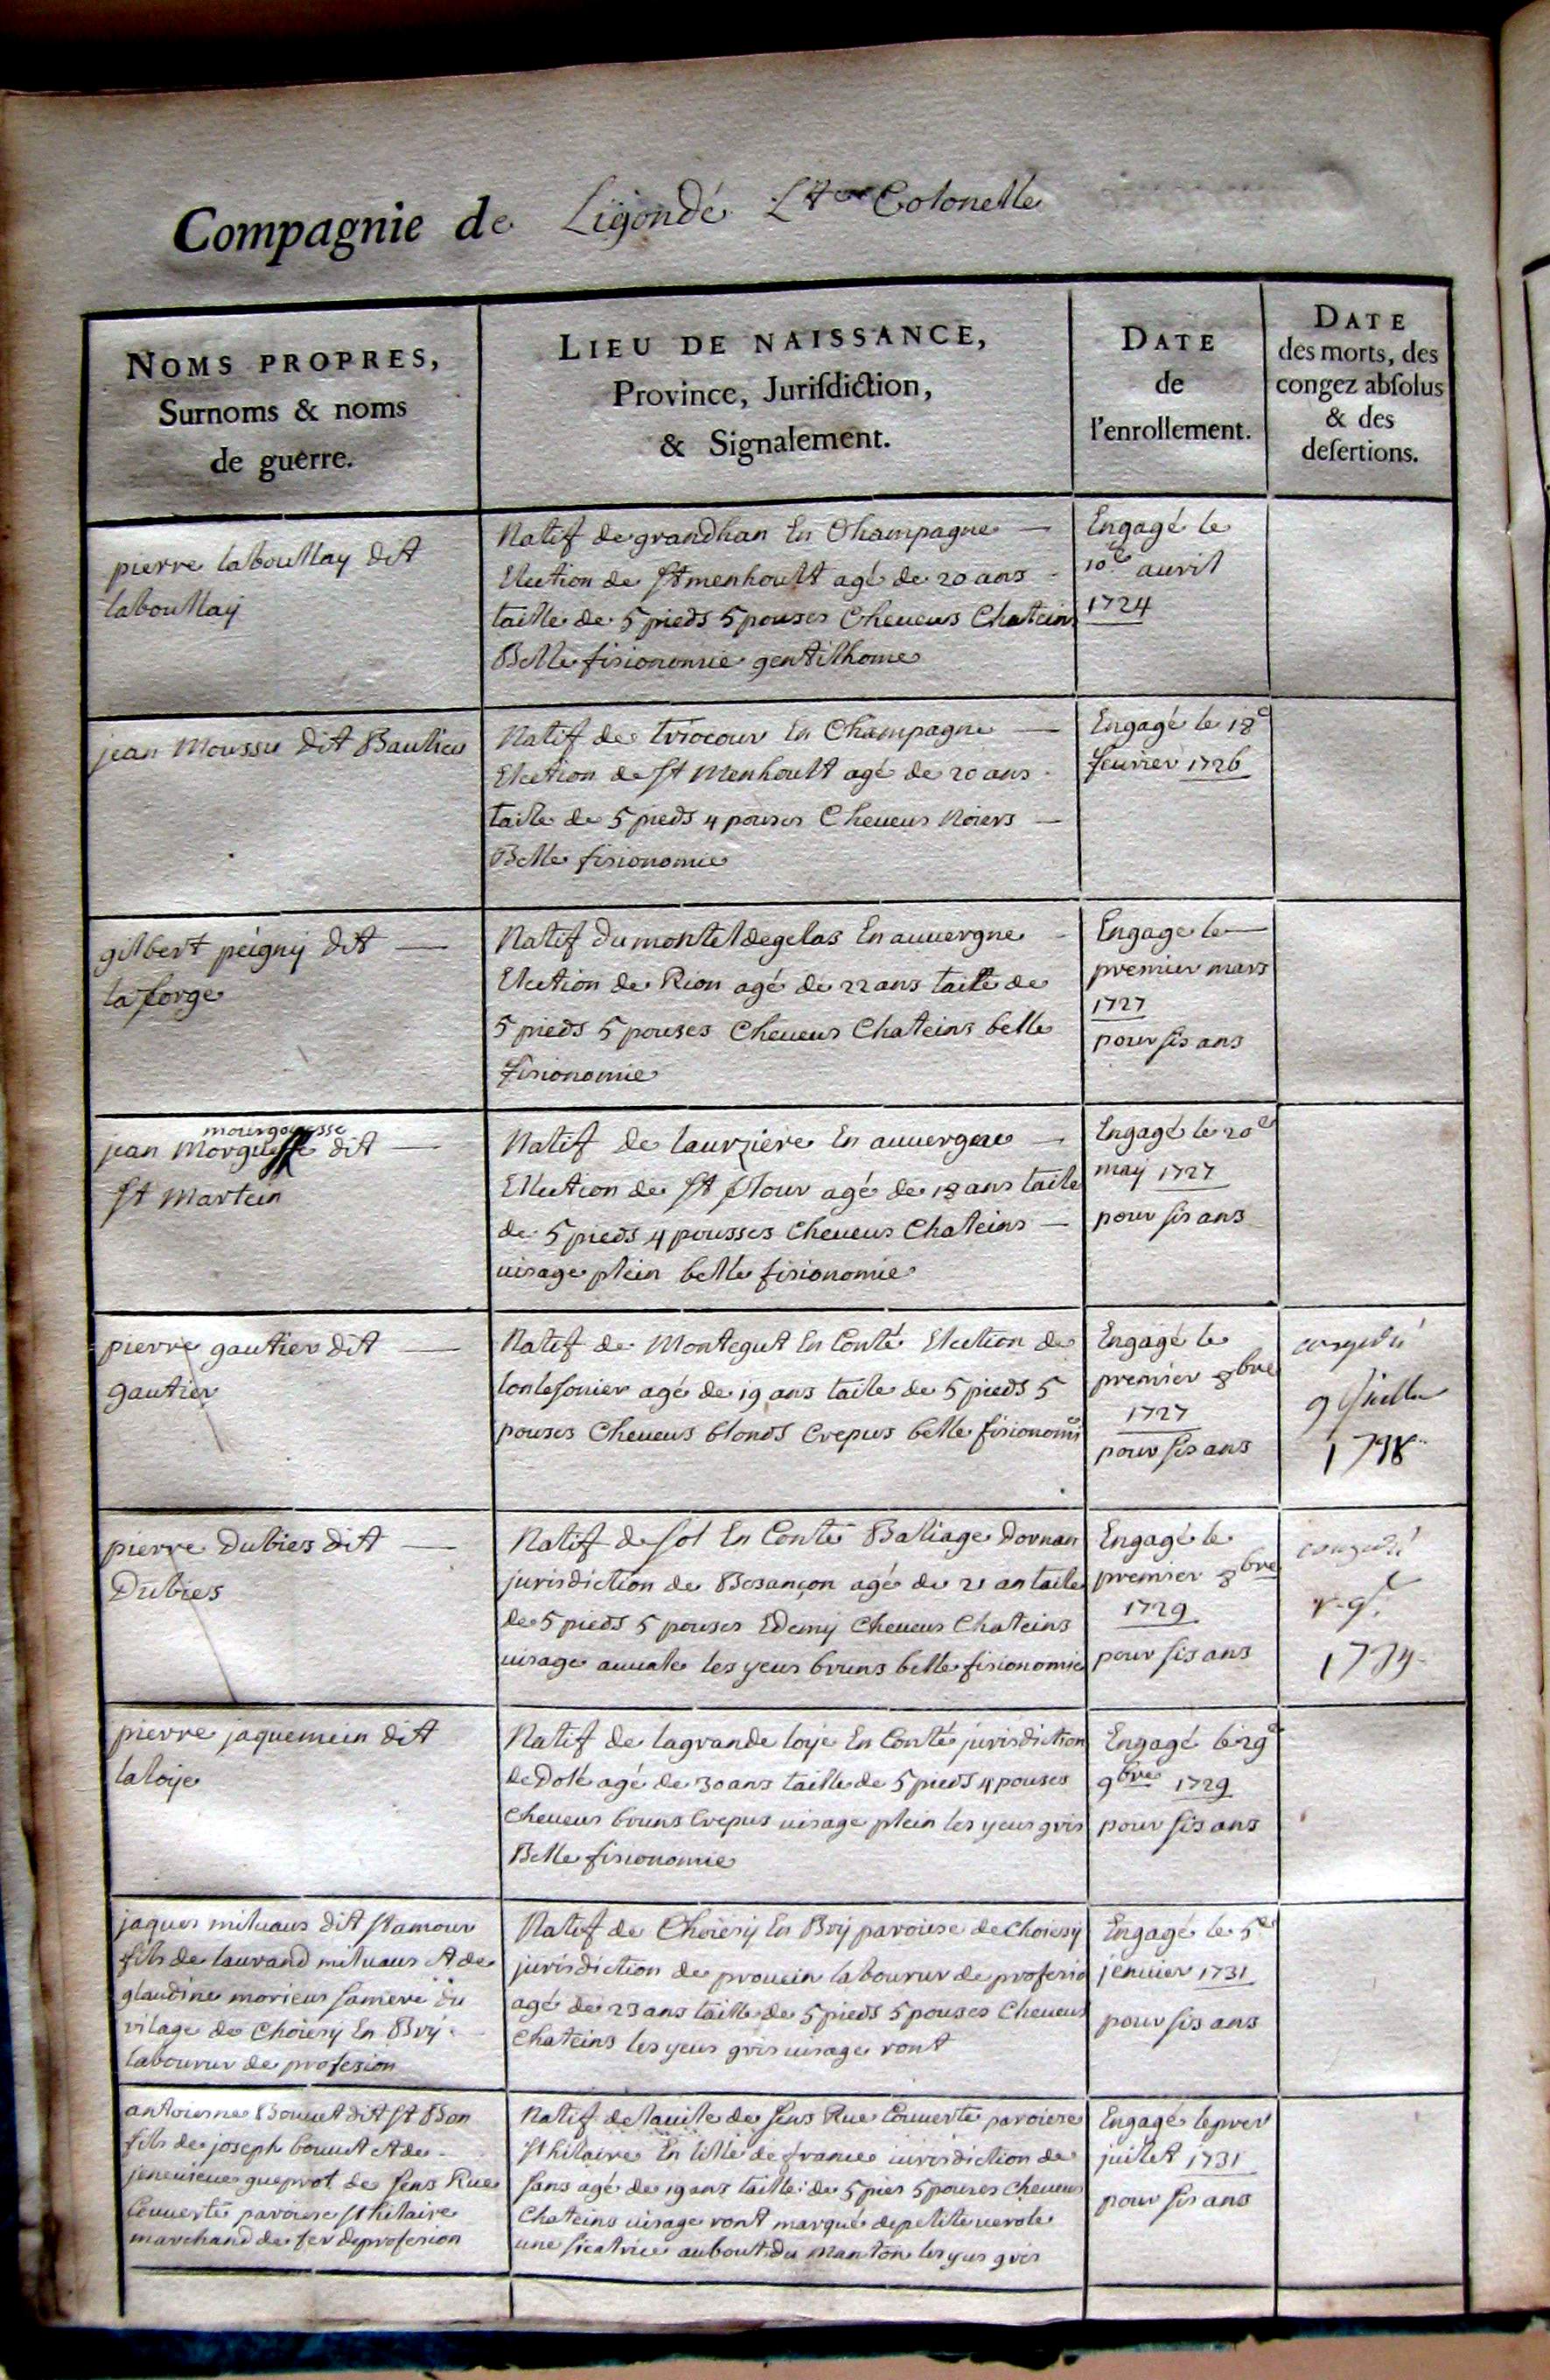 Compagnie de Ligondé Lt Colonelle
NOMS PROPRES,
Surnoms & noms
de guerre.
LIEU DE NAISSANCE,
Province, Jurisdiction,
& Signalement.
DATE
de
l'enrollement.
DATE
des morts, des
congez absolus
& des
desertions.
pierre laboullay dit
laboullay
Natif de grandhan En Champagne
Election de St menhoult agé de 20 ans
taille de 5 pieds 5 pouses Cheueus Chateins
Belle fisionomie gentilhome
Engagé le
10e auril
1724
jean Moussu dit Baulieu
Natif de triocour En Champagne
Election de St Menhoult agé de 20 ans
taille de 5 pieds 4 pouses Cheueus Noiers
Belle fisionomie
Engagé le 18e
feurier 1726
gilbert peigny dit
la forge
Natif du montel degelas En auuergne
Election de Rion agé de 22 ans taille de
5 pieds 5 pouses Cheueus Chateins belle
fisionomie
Engage le
premier mars
1727
pour sis ans
mourgouesse
jean dit
St Martein
Natif de laurziere En auuergne
Election de St flour agé de 18 ans taile
de 5 pieds 4 pousses Cheueus Chateins
uisage plein belle fisionomie
Engagé le 20e
may 1727
pour sis ans
pierre gautier dit
gautier
Natif de Montegut En Conté Election de
lonlesonier agé de 19 ans taile de 5 pieds 5
pouses Cheueus blonds Crepus belle fisionomie
Engagé le
premier 8bre
1727
pour sis ans
congedié
9
pierre Dubies dit
Dubies
Natif de sol En Conté Baliage Dornan
jurisdiction de Besançon agé de 21 an taile
de 5 pieds 5 pouses Edemy Cheueus Chateins
uisage auuale les yeus bruns belle fisionomie
Engagé le
premier 8bre
1729
pour sis ans
congedié
pierre jaquemein dit
laloije
Natif de lagrande loije En Conté jurisdiction
de Dole agé de 30 ans taille de 5 pieds 4 pouses
cheueus bruns Crepus uisage plein les yeus gris
Belle fisionomie
Engagé le 29e
9bre 1729
pour sis ans
jaques miluaus dit St amour
fils de laurand miluaus Et de
glaudine morieus samere du
vilage de Choiesy En Bry
labourur de profesion
Natif de Choiesy En Bry paroiese de Choiesy
jurisdiction de prouein labourur de profesio
agé de 23 ans taille de 5 pieds 5 pouses Cheueus
Chateins les yeus gris uisage ront
Engagé le 5e
jenuier 1731
pour sis ans
antoiesne Bouuet dit St Bon
fils de joseph bouuet Et de
jeneuieue gueprot de sens Rue
Couuerte paroiese St hilaire
marchand de fer de profesion
Natif de lauile de sens Rue Couuerte paroiese
St hilaire En lille de france iurisdiction de
sans agé de 19 ans taille de 5 pies 5 pouses cheueus
Chateins uisage ront marqué de petite uerole
une sicatrice au bout du Manton les yus gris
Engagé le prer
juillet 1731
pour sis ans